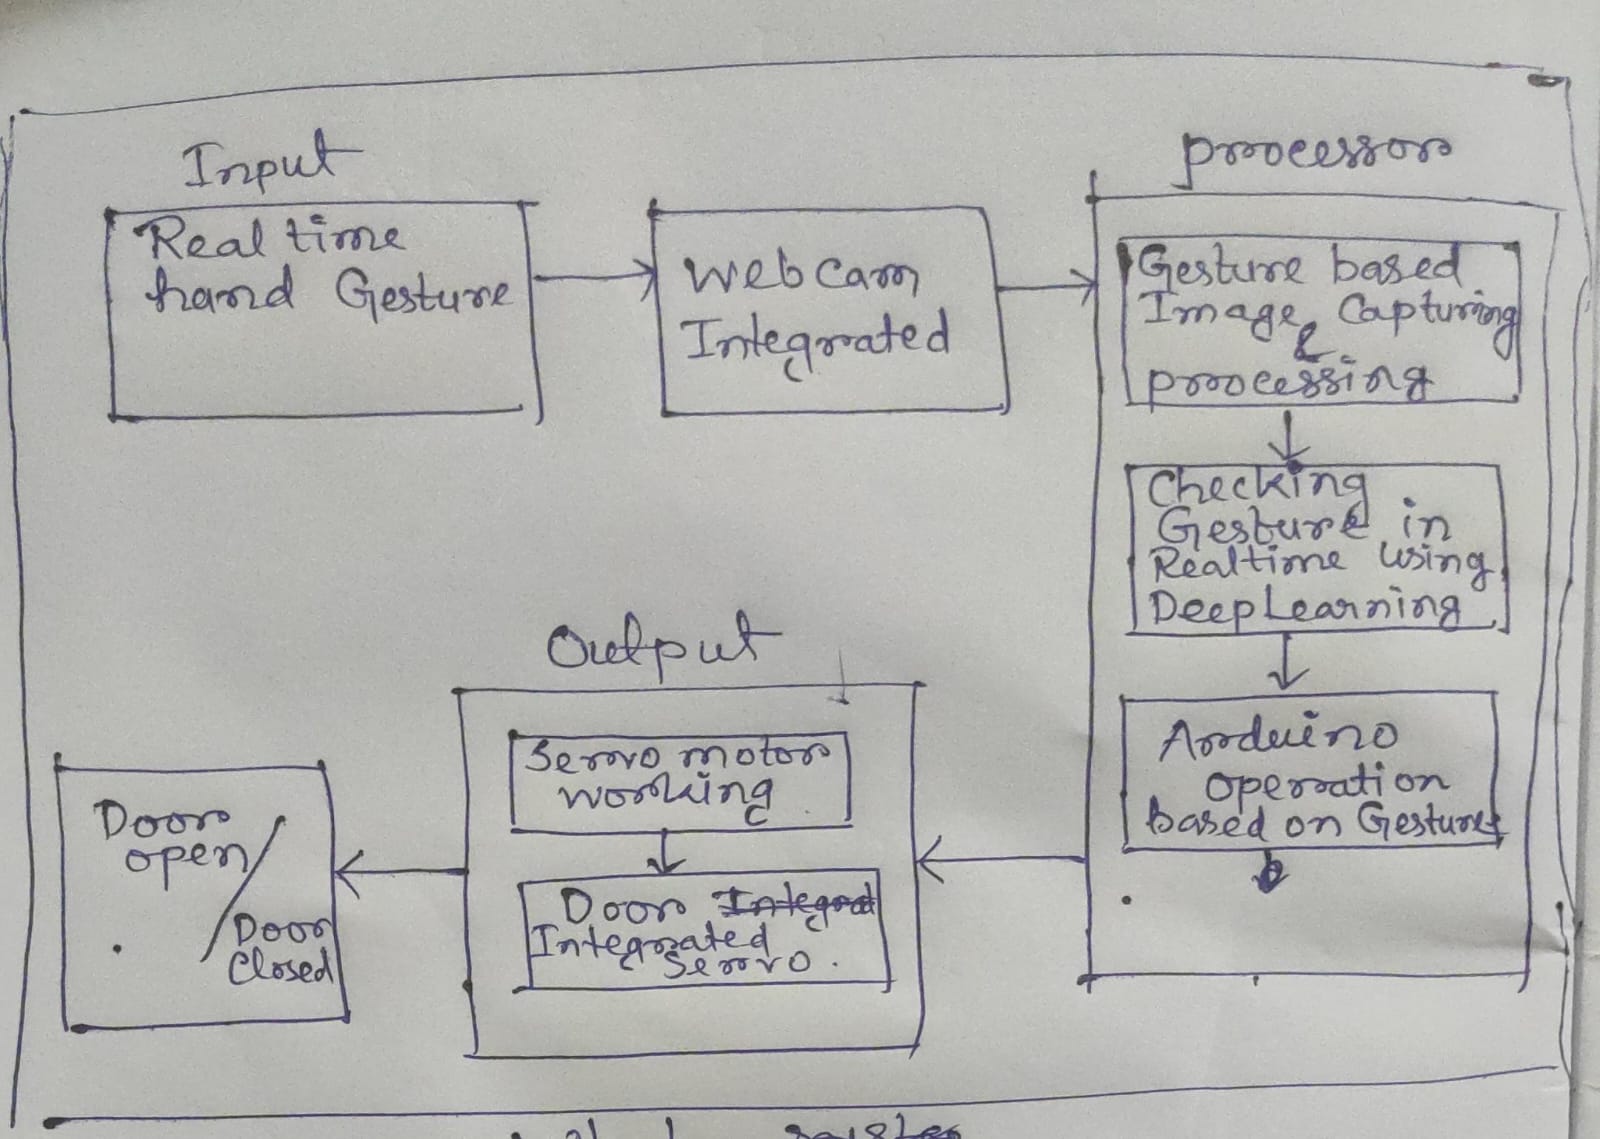 Input
Real time
hand Gesture
Webcam
Integrated
processor
Gesture based
Image Capturing
&
processing
Checking
Gesture in
Realtime using
DeepLearning
Arduino
operation
based on Gesture
Output
Servo motor
working
Door Integrat
Integrated
Servo.
Door
open/
Door
Closed